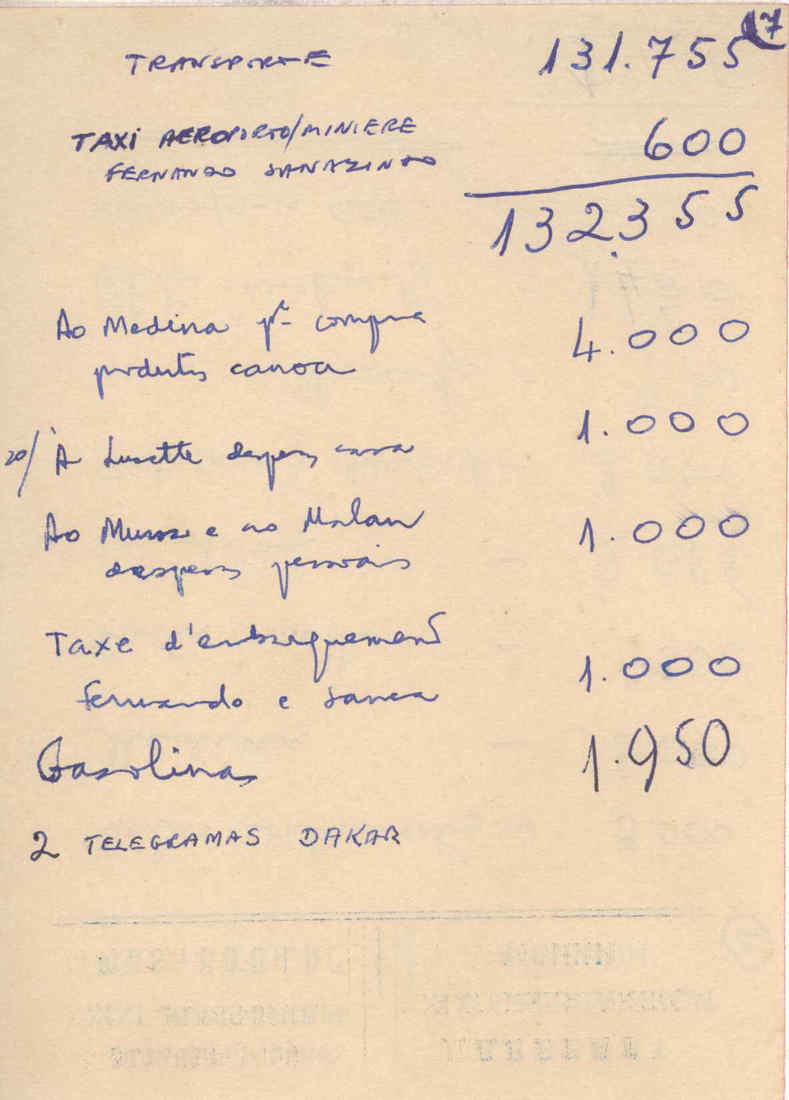 17
TRANSPORTE 131.755
TAXI AEROPORTO/MINIERE 600
FERNANDO
132.355
Ao Medina pª compra 4.000
produtos canoa
20/ À Lucette despesas casa 1.000
Ao Munoz e ao Malan 1.000
despesas pessoais
Taxe d'embarquement
Fernando e 1.000
Gasolina 1.950
2 TELEGRAMAS DAKAR